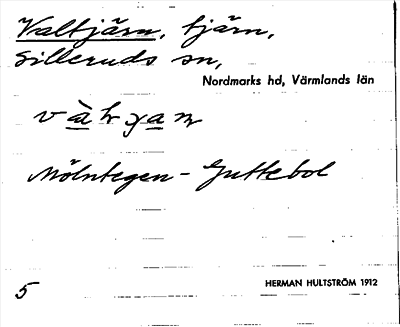 Valtjärn, tjärn,
Silleruds sn,
Nordmarks hd, Värmlands län
Mölntegen - Guttebol
5
HERMAN HULTSTRÖM 1912